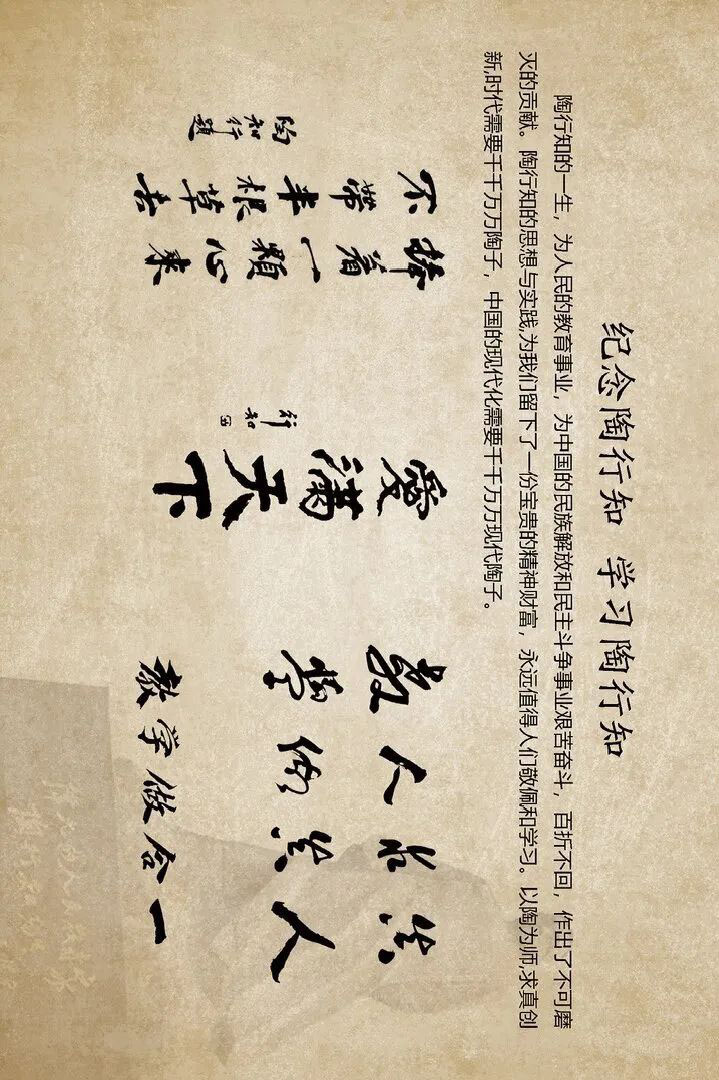 纪念陶行知 学习陶行知
陶行知的一生，为人民的教育事业，为中国的民族解放和民主斗争事业艰苦奋斗，百折不回，作出了不可磨
灭的贡献。陶行知的思想与实践,为我们留下了一份宝贵的精神财富，永远值得人们敬佩和学习。以陶为师,求真创
新,时代需要千千万万陶子，中国的现代化需要千千万万现代陶子。
捧着一顆心来
不帶半根草去
陶知行題
愛满天下
行知
教人求真
學做真人
教学做合一